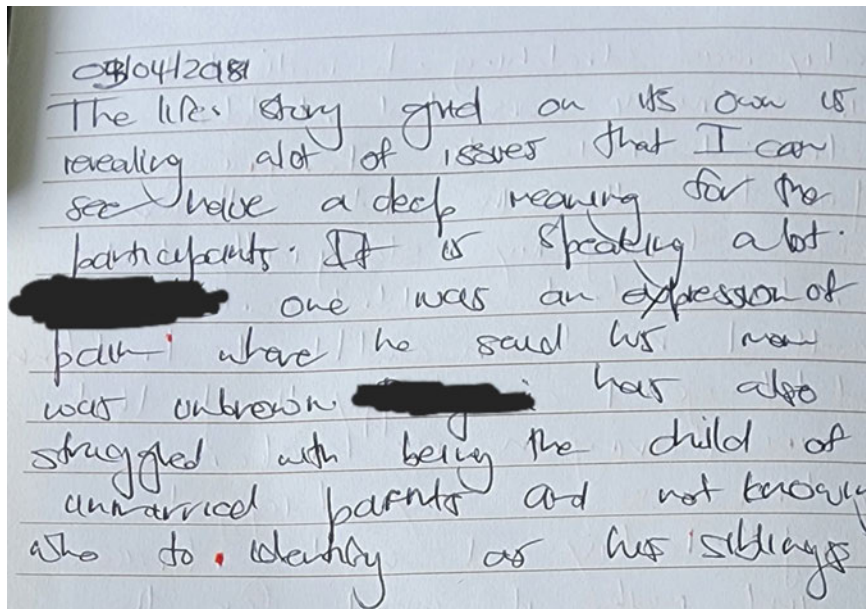 The life story grid on its own is
revealing alot of issues that I can
see have a deep meaning for the
participants. It is speaking a lot.
one was an expression of
pain where he said his mom
was unknown has also
struggled with being the child of
unmarried parents and not knowing
who to identify as his siblings